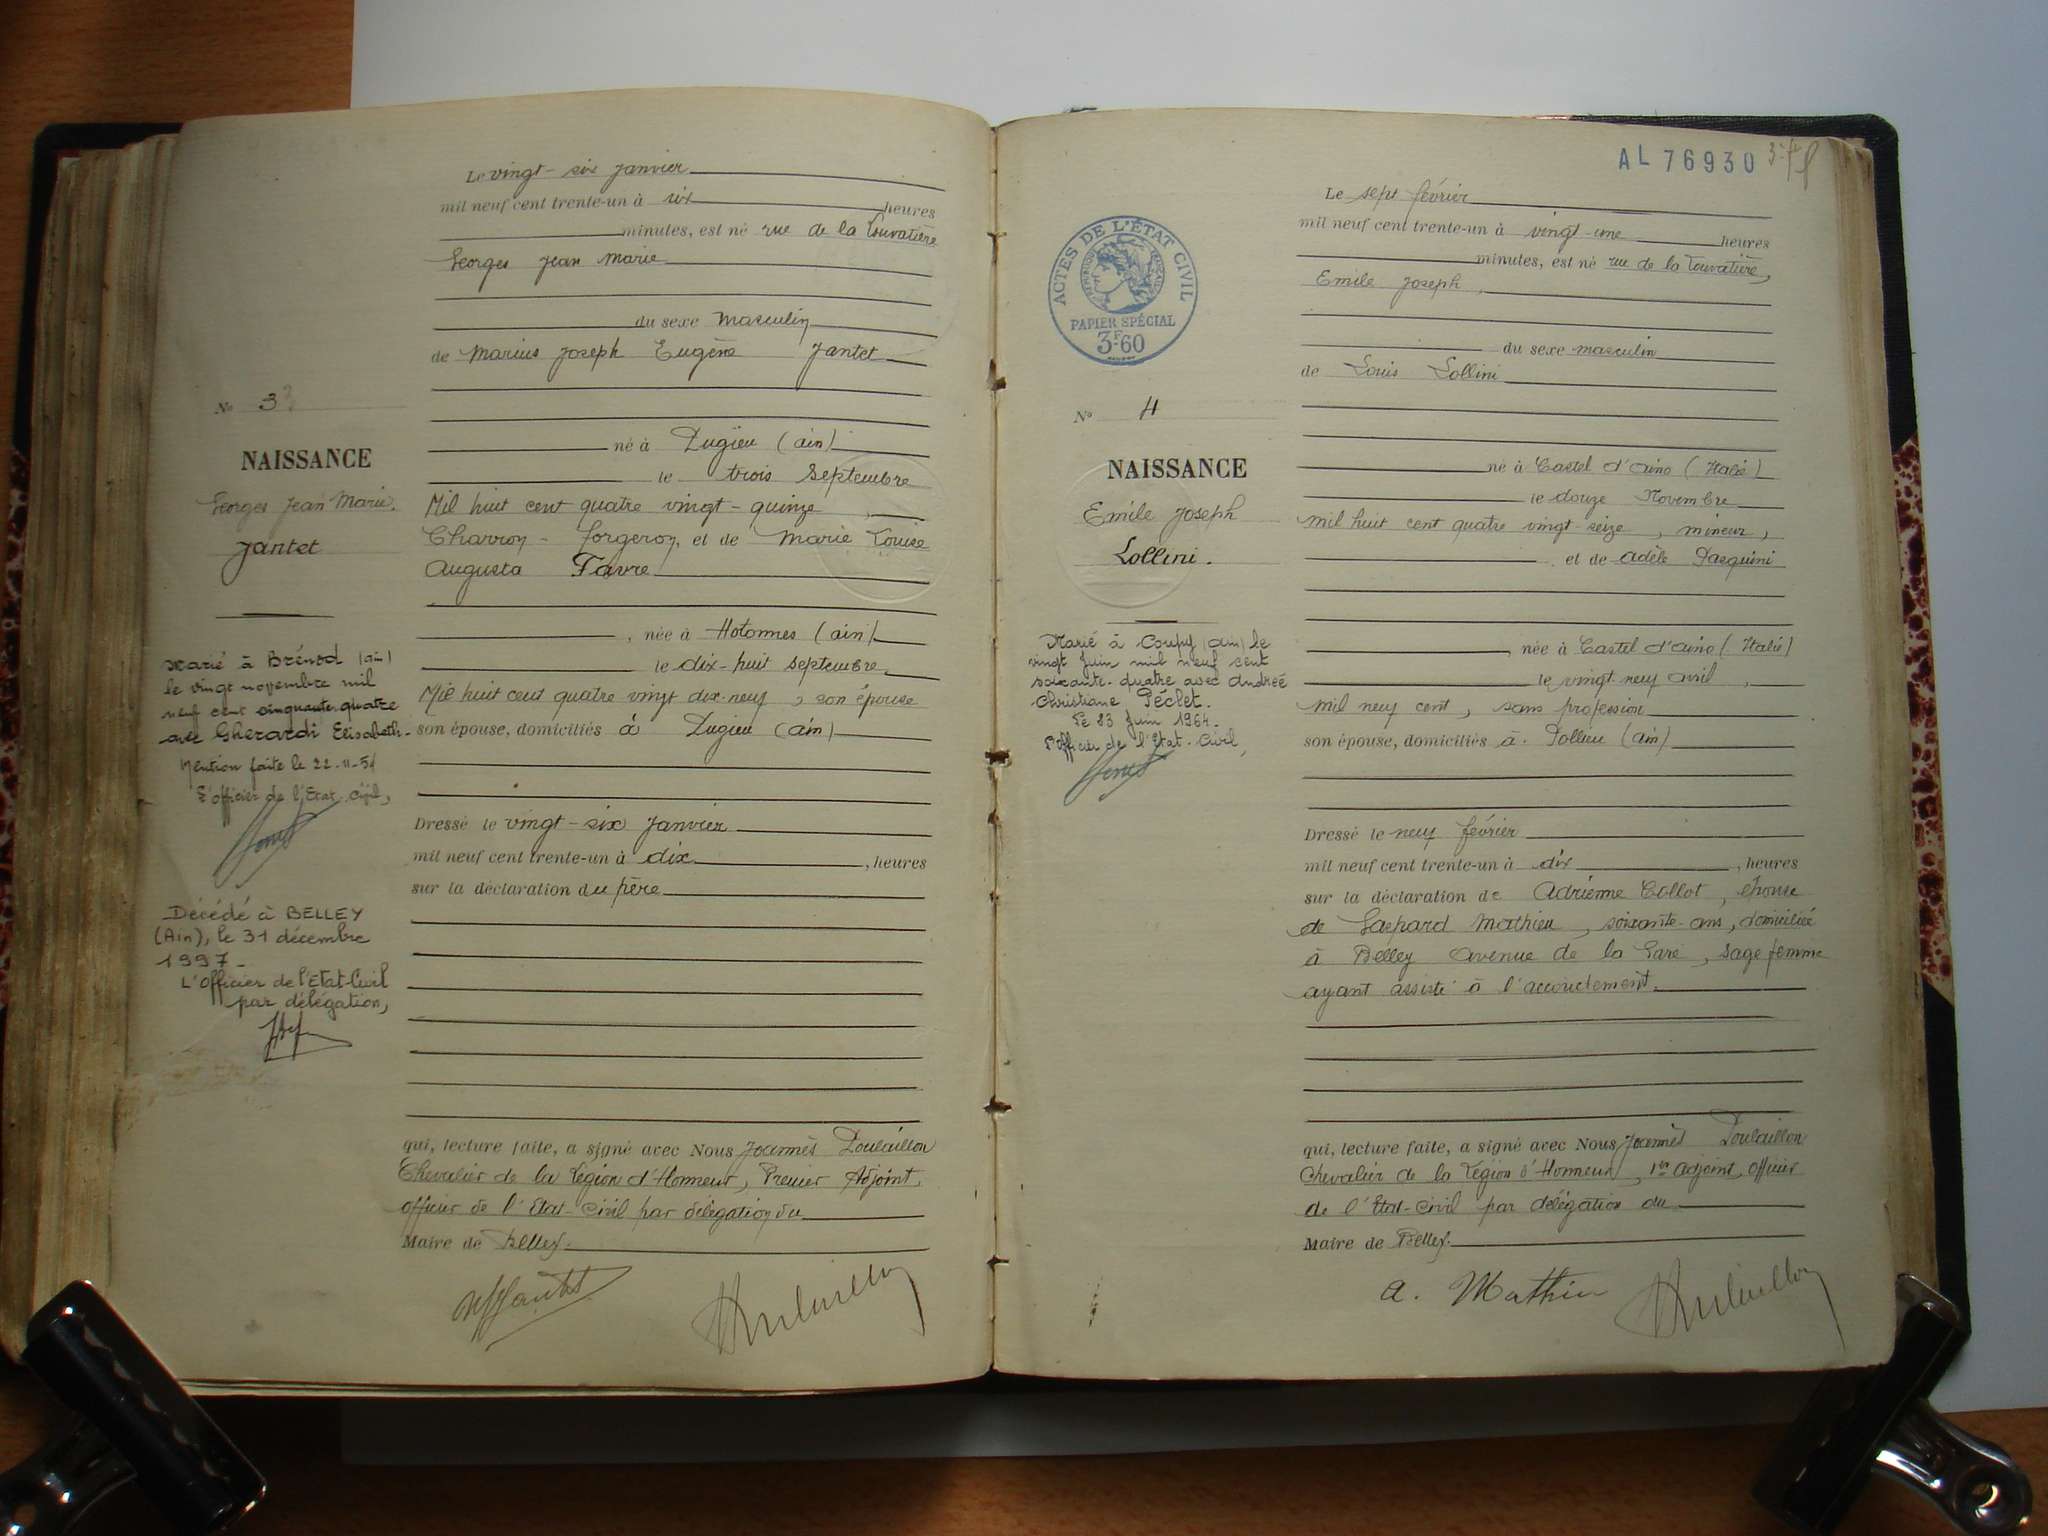 Le vingt-six janvier
mil neuf cent trente-un à six heures
minutes, est né rue de la Louvatière
Georges Jean Marie
du sexe masculin
de Marius Joseph Eugène Jantet
No 33
NAISSANCE
Georges Jean Marie
Jantet
né à Lugieu (ain)
le trois septembre
Mil huit cent quatre vingt-quinze
Charron - forgeron, et de Marie Louise
Augusta Favre
, née à Hotonnes (ain)
le dix-huit septembre
Mil huit cent quatre vingt dix-neuf, son épouse
son épouse, domiciliés à Lugieu (ain)
Marié à Brénod (ain)
le vingt novembre mil
neuf cent cinquante quatre
avec Gherardi Elisabeth.
Mention faite le 22-11-54
L'officier de l'Etat-Civil,
Dressé le vingt-six janvier
mil neuf cent trente-un à dix, heures
sur la déclaration du père
Décédé à BELLEY
(Ain), le 31 décembre
1997-
L'Officier de l'Etat-Civil
par délégation,
qui, lecture faite, a signé avec Nous Joannès Doulaillon
Chevalier de la Légion d'Honneur, Premier Adjoint,
officier de l'Etat-Civil par délégation du
Maire de Belley.
AL 76930
Le sept février
mil neuf cent trente-un à vingt-une heures
minutes, est né rue de la Louvatière,
Emile Joseph
du sexe masculin
de Louis Lollini
ACTES DE L'ÉTAT CIVIL
PAPIER SPÉCIAL
3F60
No 4
NAISSANCE
Emile Joseph
Lollini.
né à Castel d'aino (Italie)
le douze Novembre
mil huit cent quatre vingt-seize, mineur,
et de adèle Pasquini
, née à Castel d'aino (Italie)
le vingt neuf avril,
mil neuf cent, sans profession
son épouse, domiciliés à Pollieu (ain)
Marié à Coupy (ain) le
vingt juin mil neuf cent
soixante-quatre avec Andrée
Christiane Péclet.
Le 23 Juin 1964.
L'officier de l'Etat-Civil,
Dressé le neuf février
mil neuf cent trente-un à dix, heures
sur la déclaration de Adrienne Collot, épouse
de Gaspard Mathieu, soixante-ans, domiciliée
à Belley avenue de la Gare, sage femme
ayant assisté à l'accouchement.
qui, lecture faite, a signé avec Nous Joannès Doulaillon
Chevalier de la Légion d'Honneur, 1er adjoint, officier
de l'Etat-Civil par délégation du
Maire de Belley.
a. Mathieu